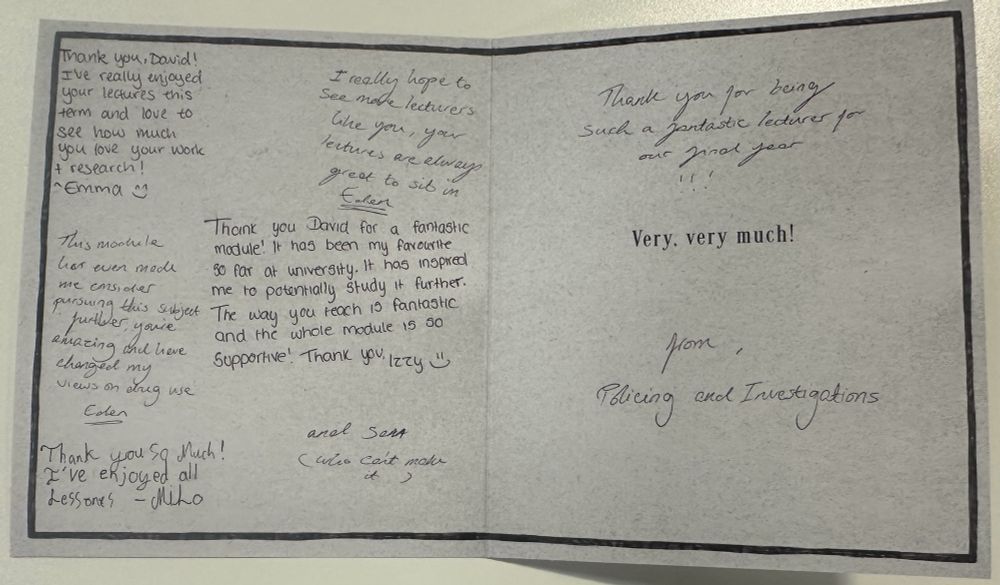 Thank you, David!
I've really enjoyed
your lectures this
term and love to
see how much
you love your work
+ research!
~Emma :)
I really hope to
see more lecturers
like you, your
lectures are always
great to sit in
Eden
This module
has even made
me consider
pursuing this subject
further, you're
amazing and have
changed my
views on drug use
Eden
Thank you David for a fantastic
module! It has been my favourite
so far at university. It has inspired
me to potentially study it further.
The way you teach is fantastic
and the whole module is so
supportive! Thank you, Izzy :)
Thank you so Much!
I've enjoyed all
Lessones - Milo
and Sara
(who can't make
it )
Thank you for being
such a fantastic lecturer for
our final year
!!!
Very, very much!
from,
Policing and Investigations